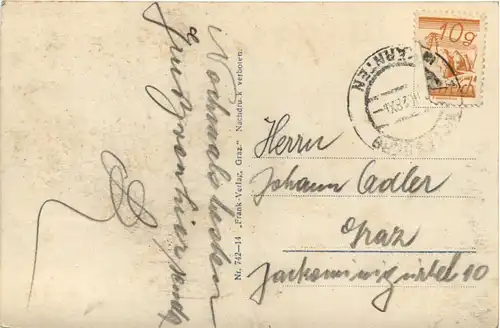 Nochmals besten
Nr. 742—14 „Frank-Verlag, Graz." Nachdruck verboten.
10g
KÄRNTEN
Herrn
Johann Adler
Graz
Jackominigürtel 10